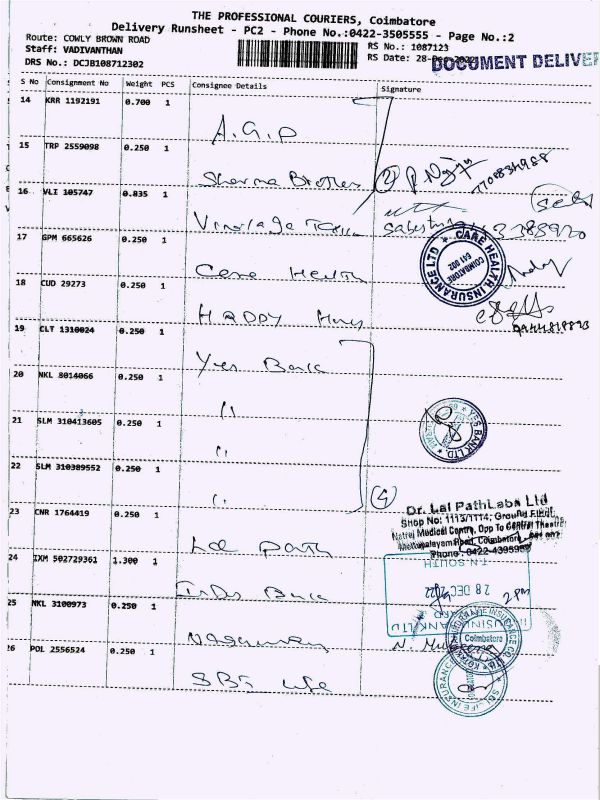 THE PROFESSIONAL COURIERS, Coimbatore
Delivery Runsheet - PC2 - Phone No.:0422-3505555 - Page No.:2
Route: COWLY BROWN ROAD
Staff: VADIVANTHAN
DRS No.: DCJB108712302
RS No.: 1087123
RS Date: 28-Dec-2022
DOCUMENT DELIVER
S No Consignment No Weight PCS Consignee Details Signature
14 KRR 1192191 0.700 1
A.G.P
15 TRP 2559098 0.250 1
Sharma Brothers
16 VLI 105747 0.835 1
17 GPM 665626 0.250 1
Care Health
CARE HEALTH INSURANCE LTD
COIMBATORE
641 002
18 CUD 29273 0.250 1
HAPPY
19 CLT 1310024 0.250 1
Yes Bank
20 NKL 8014066 0.250 1
"
YES BANK LTD
21 SLM 310413605 0.250 1
"
22 SLM 310389552 0.250 1
"
4
23 CNR 1764419 0.250 1
Lal path
Dr. Lal PathLabs Ltd
Shop No: 1113/1114, Ground Floor,
Natraj Medical Centre, Opp To Central Theatre
Mettupalayam Road, Coimbatore
Phone: 0422-4395989
24 IXM 502729361 1.300 1
Indus Bank
T.N.SOUTH
28 DEC 2022
2pm
25 NKL 3100973 0.250 1
Coimbatore
26 POL 2556524 0.250 1
SBI Life
SBI LIFE INSURANCE